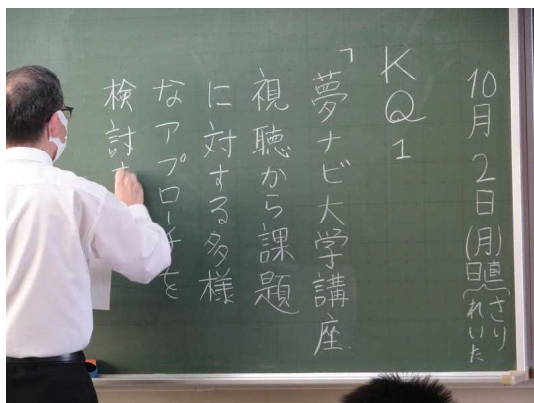 10月2日(月)日直 さり れいた
KQ1
「夢ナビ大学講座
視聴から課題
に対する多様
なアプローチを
検討す